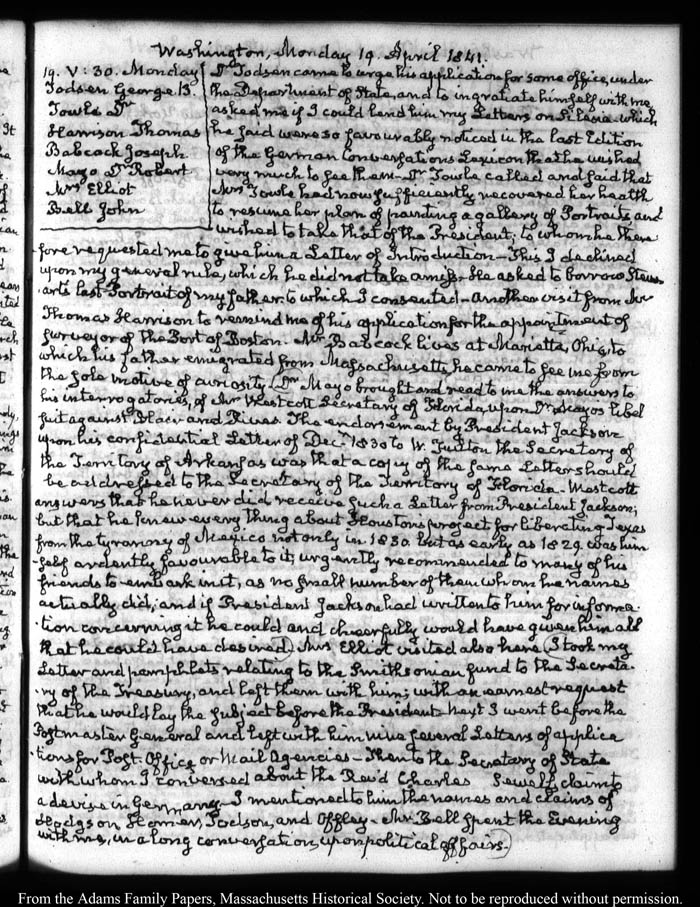 Washington, Monday 19. April 1841.
19. V: 30. Monday
Todsen George B.
Towle Dr
Harrison Thomas
Babcock Joseph
Mayo Dr Robert
Mrs Elliot
Bell John
Dr Todsen came to urge his application for some office, under
the Department of State, and to ingratiate himself with me,
asked me if I could lend him my Letters on Silesia which
he said were so favourably noticed in the last Edition
of the German Conversations Lexicon that he wished
very much to see them. Dr Towle called and said that
Mrs Towle had now sufficiently recovered her health
to resume her plan of painting a gallery of Portraits and
wished to take that of the President; to whom he there
fore requested me to give him a Letter of Introduction — This I declined
upon my general rule, which he did not take amiss. He asked to borrow Stew-
art's last Portrait of my father, to which I consented — Another visit from Mr
Thomas Harrison to remind me of his application for the appointment of
Surveyor of the Port of Boston. Mr Babcock lives at Marietta, Ohio, to
which his father emigrated from Massachusetts, he came to see me from
the sole motive of curiosity. Dr Mayo brought and read to me the answers to
his interrogatories, of Mr Westcott Secretary of Florida, upon Dr Mayo's libel
suit against Blair and Rives. The endorsement by President Jackson
upon his confidential Letter of Decr 1830 to W. Fulton the Secretary of
the Territory of Arkansas was that a copy of the same Letter should
be addressed to the Secretary of the Territory of Florida. Westcott
answers that he never did receive such a Letter from President Jackson;
but that he knew every thing about Houston's project for liberating Texas
from the tyranny of Mexico not only in 1830 but as early as 1829. was him
-self ardently favourable to it; urgently recommended to many of his
friends to embark in it, as no small number of them whom he names
actually did; and if President Jackson had written to him for informa-
-tion concerning it he could and cheerfully would have given him all
that he could have desired. Mrs Elliot visited also here. I took my
Letter and pamphlets relating to the Smithsonian fund to the Secreta-
-ry of the Treasury, and left them with him; with an earnest request
that he would lay the subject before the President. Next I went before the
Postmaster General and left with him nine several Letters of applica
-tions for Post-Office or Mail Agencies — Then to the Secretary of State
with whom I conversed about the Revd Charles Sewell's claim to
a devise in Germany. I mentioned to him the names and claims of
Hodgson, Todson, and Offley. Mr Bell spent the Evening
with me, in a long conversation, upon political affairs.
From the Adams Family Papers, Massachusetts Historical Society. Not to be reproduced without permission.